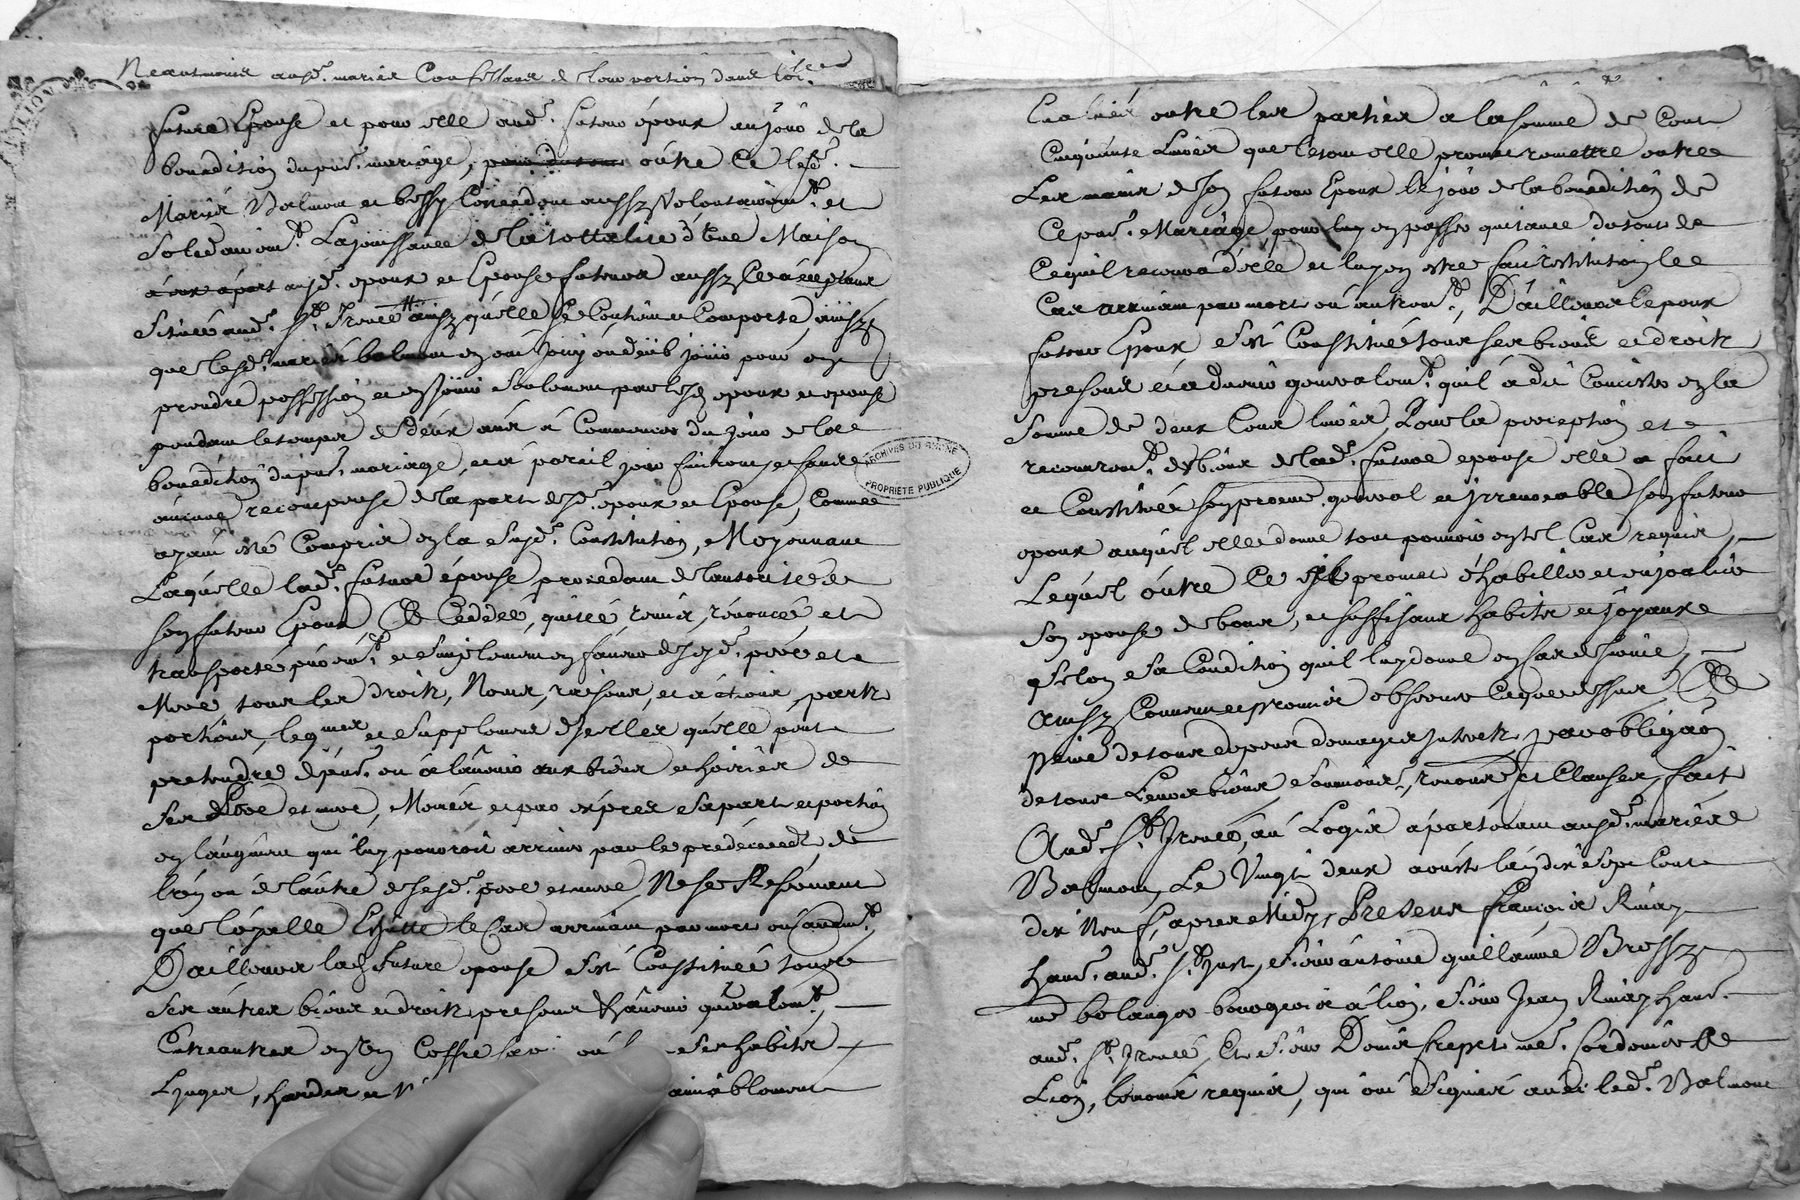 Neantmoins ausd. mariés Confessant de leur portion dans
future Epouse et pour elle aud. futeur époux au jour de la
benediction du pnt. mariage, outre Ce lesd.
Mariés Balmont et Bessy Concedent aussy volontairemt. et
Solidairemt. La jouissance de la tottalité d'Une Maison
ausd. epoux et Epouse futeurs aussy
Située aud. St. Irenée ainsy qu'elle se Contient et Comporte, ainsy
que lesd. mariés balmont en ont jouy ou deüb jouir pour en
prendre possession et en jouir seulement par lesd. epoux et epouse
pendant le temps de deux ans à Commencer du jour de la
benediction du pnt. mariage, et à pareil jour finiront, et sans
aucune recompense de la part desd. epoux et Epouse, Comme
ayant été Compris en la Susd. Constitution, Moyennant
Laquelle lad. future épouse procedant de l'autorité de
son futeur Epoux a Cédée, quitté, remis, renoncé et
transporté puremt. et Simplement en faveur de sesd. pere et
Mere tous les droits, Noms, raisons, et actions, parts
portions, legmes et Supplement d'icelles qu'elle peut
pretendre de pnt. ou à l'avenir aux biens et hoiries de
Ses Pere et mere, Meme et par exprés Sa part et portion
en l'augment qui luy pourroit arriver par le prédécéedz de
l'un ou de l'autre de sesd. pere et mere, Ne se Reservant
que loyalle Echutte le Cas arrivant par mort ou autremt.
D'ailleurs lad. Future epouse s'est Constituée tous
Ses autres biens et droits presens et avenir generalemt.
Entreautres en un Coffre Ses habits
Linges, hardes et aimablement
outre les parties a la somme de Cent
Cinquante Livres que le tout elle promet remettre entre
Les mains de son futeur Epoux le jour de la benediction de
Ce pnt. Mariage, pour luy en passer quitance du tout de
Ce qu'il recevra d'elle et luy en etre fait restitution le
Cas arrivant par mort ou autremt. D'ailleurs l'epoux
futeur Epoux s'est Constitué tous ses biens et droits
presens et advenir generalemt. qu'il a dit Concister en la
Somme de deux Cents livres, Pour la perception et
recouvremt. des biens de lad. future epouse elle a fait
et Constitué son procureur general et irrevocable son futeur
epoux auquel elle donne tout pouvoir en tel Cas requis,
Lequel outre Ce promet d'habiller et enjoalier
son epouse de bons, et suffisants habits et joyaux
selon sa Condition qu'il luy donne en Cas de survie,
Ainsy Convenu et Promis observer Ce que dessus, A
peine de tous depens domages interets, par obligaon
de tous Leurs biens, soumons. renons. et Clauses, fait
Aud. St. Irenée, au Logis apartenant ausd. mariés
Balmont, Le Vingt deux aoust mil Sept Cent
dix Neuf, apres Midy, Presens François Rivay
habt. aud. St. Just, Sieur antoine guillaume Brossy
me bolanger bourgeois à lion, Sieur Jean Rivay habt.
aud. St. Irenée, Et Sieur Denis frepet me. Cordonier de
Lion, temoins requis, qui ont Signés avec led. Balmont
ARCHIVES DU RHÔNE
PROPRIÉTÉ PUBLIQUE